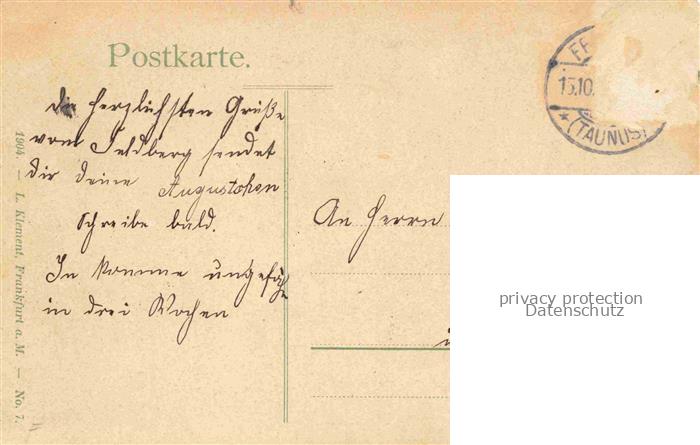 Postkarte.
Die herzlichsten Grüße
vom Feldberg sendet
dir deine Augustchen
Schreibe bald.
Ich komme ungefähr
in drei Wochen
An Herrn
15.10.
(TAUNUS)
1904. — L. Klement, Frankfurt a. M. — No. 7.
privacy protection
Datenschutz